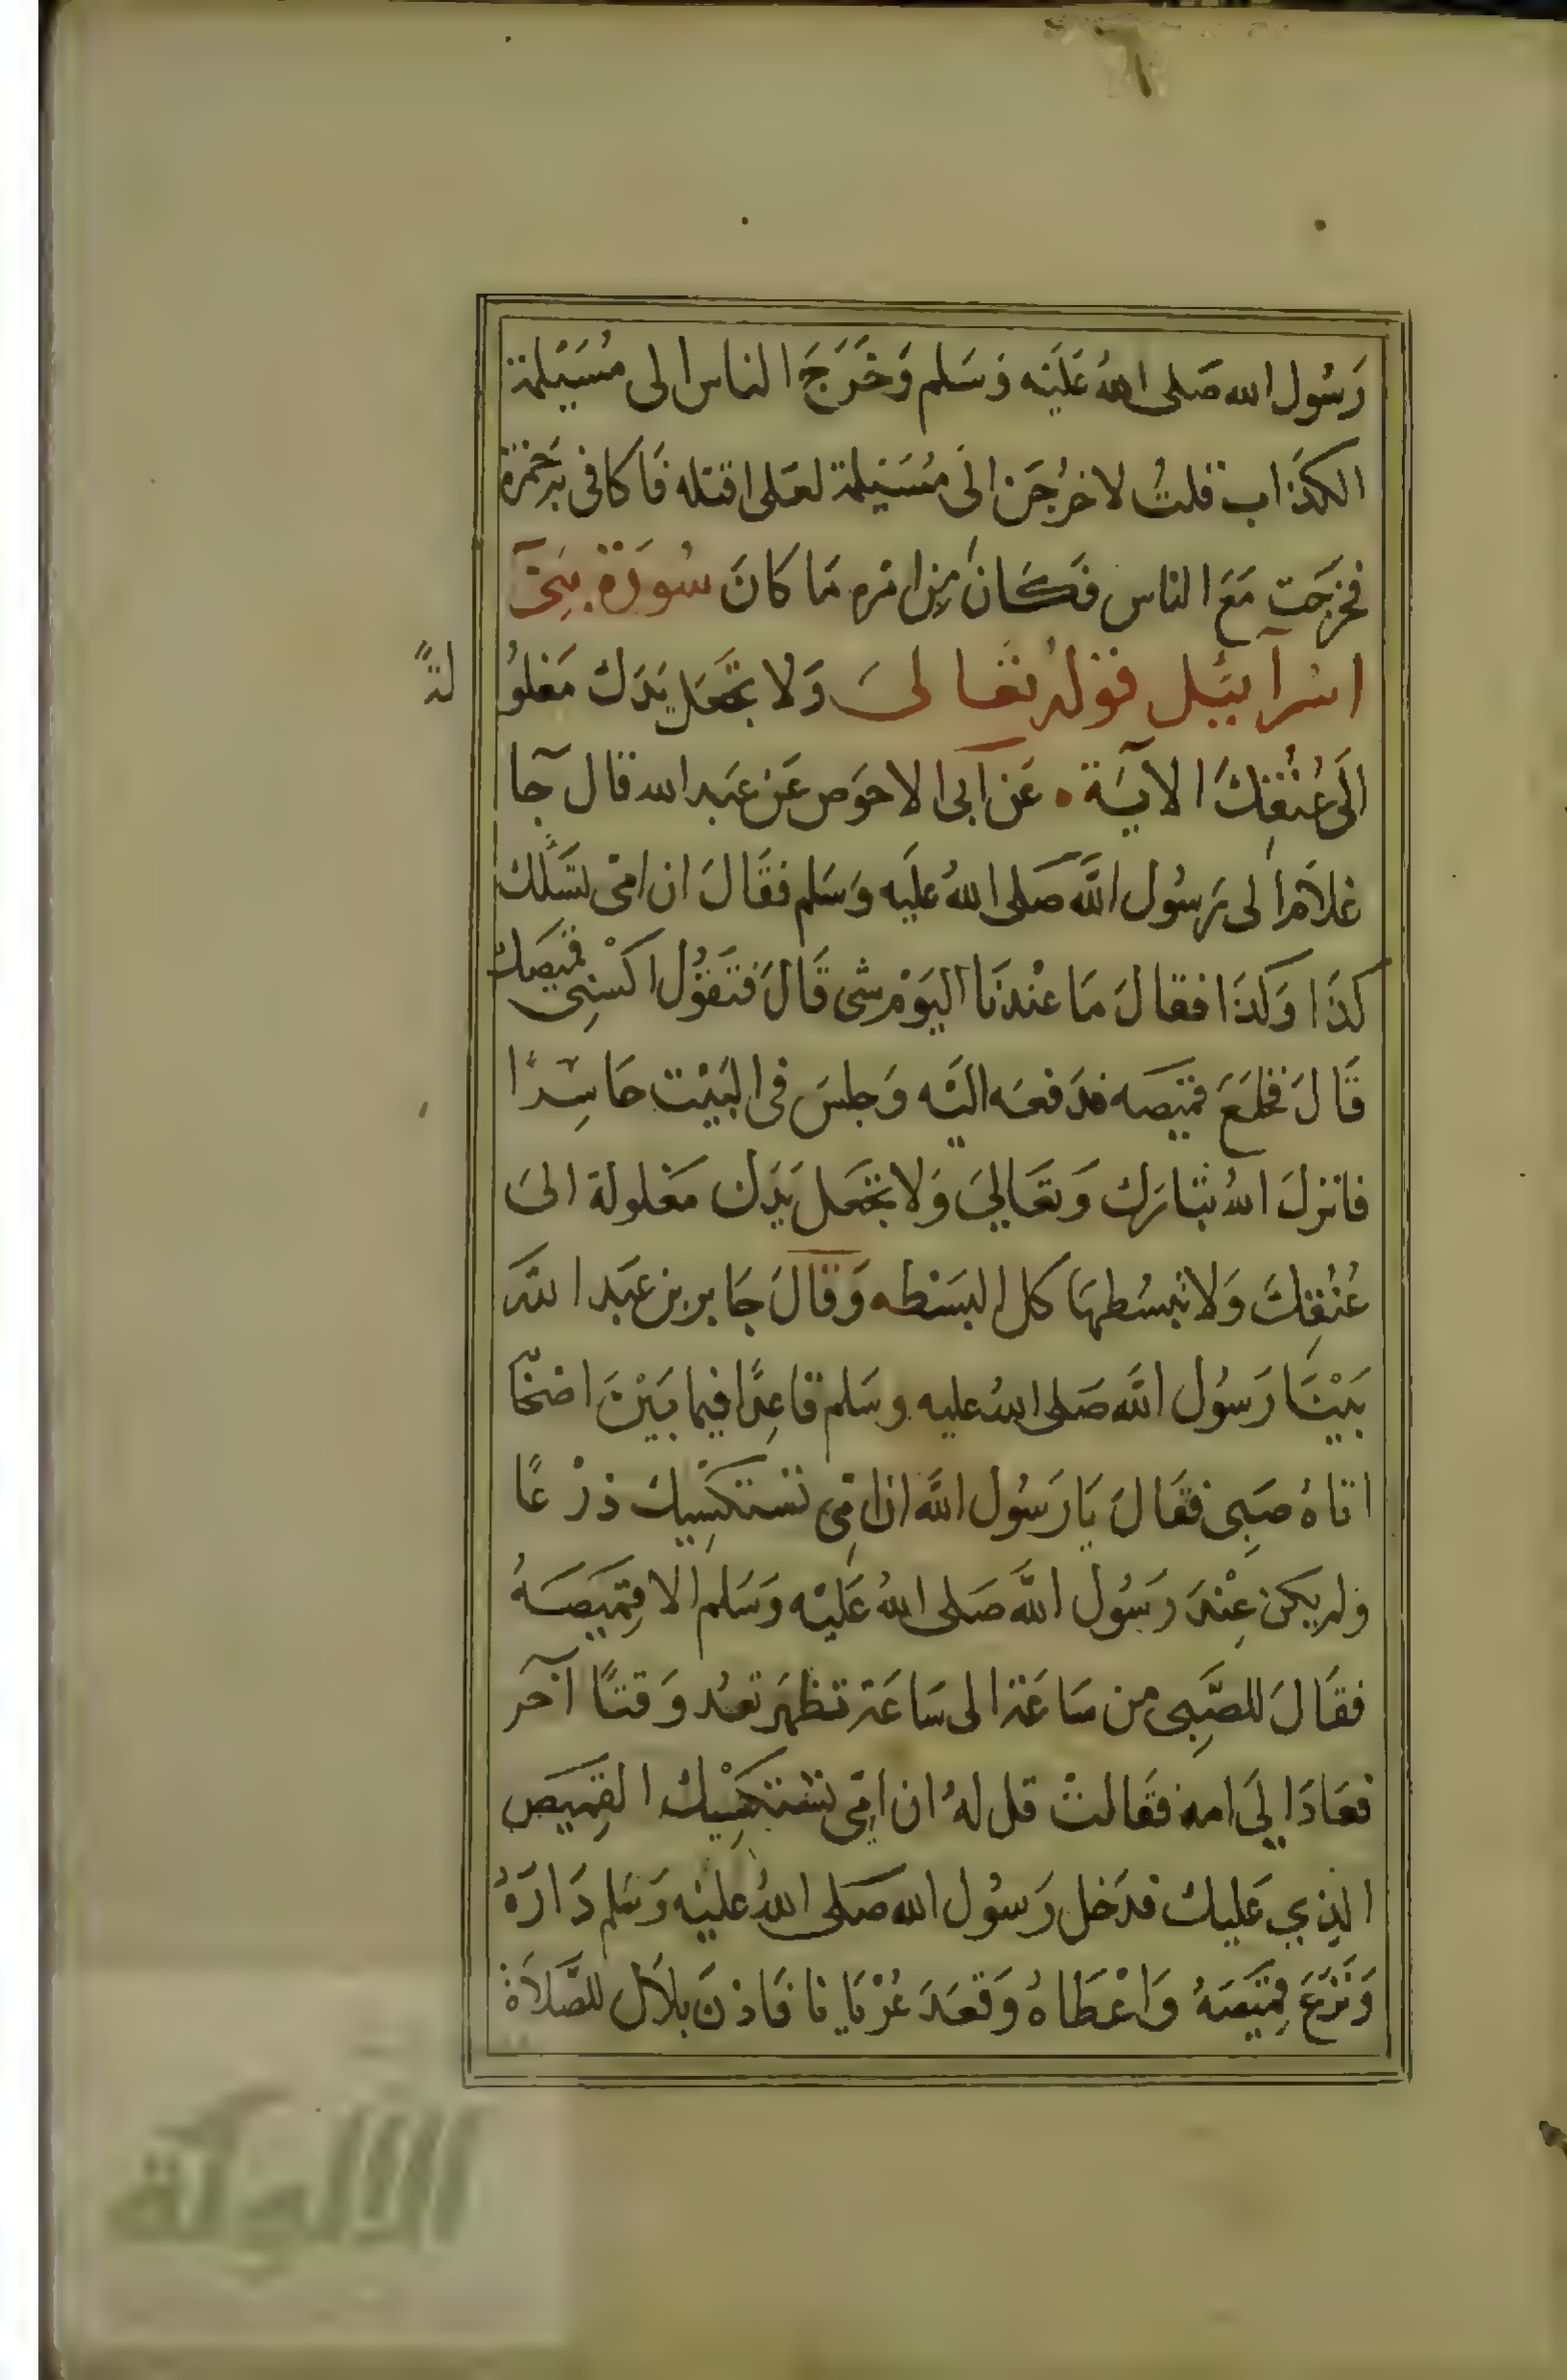 رَسُول الله صَلى اللهُ عَليَه وَسَلم وَخَرَجَ الناس الى مُسَيْلمة
الكذَاب قلتُ لاخرُجَن الَى مُسَيْلمة لعَلى اقتله فَاكافى به حَمزة
فخرَجَت مَعَ الناس فَكَانَ مِن امره مَا كانَ سُورَة بَنِىٓ
اسْرآئيل قوْلهُ تعَالىَ وَلا تجْعَل يَدَك مَغلوُ لةً
الَى عُنُقِكَ الآيَة عَن ابى الاحوَص عَن عَبد الله قال جَآ
غلاَم الى رَسُول اللَّه صَلى اللهُ عَليَه وَسَلم فقَالَ ان امى تسَلك
كذَا وَكذَا فقالَ مَا عنْدنَا اليَوْم شى قَالَ فتَقوُل اكسْنِى قميصَك
قَالَ فخلعَ قميصَه فدَفعَه اليَه وَجلسَ فى البَيْت حَاسِرًا
فانزلَ اللهُ تبَارَك وَتعَالىَ وَلا تجْعَل يَدَك مَغلولة الىَ
عُنُقِكَ وَلا تبسُطهَا كل البَسْطه وَقالَ جَابر بن عَبد اللَّه
بَيْنَا رَسُول اللَّه صَلى اللهُ عليه وسَلم قاعِدًا فيما بَيْنَ اصْحَا بِهِ
اتاهُ صَبِى فقَالَ يَا رَسُول اللَّه ان امِّى تسْتكسْيك دْرعًا
ولم يكن عِنْدَ رَسُول اللَّه صَلى اللهُ عَليْه وَسَلم الا قِمَيصَهُ
فقَالَ للصَّبِى من سَاعَة الى سَاعَة تظهَر تعُد وَقتًا آخر
فعَادَ الىَ امه فقَالتْ قل لهُ ان امِّى تسْتكسِيْك القِمَيص
الذِي عَليك فدَخل رَسُول الله صَلى اللهُ عَليْه وَسَلم دَارَهُ
وَنَزَعَ قِمَيصَهُ وَاعْطَاهُ وَقعَدَ عُرْيَانا فَاذنَ بلاَل للصَّلاَة
الألوكة